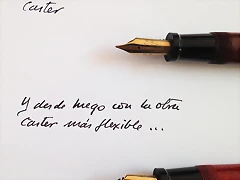 Carter
Y desde luego con la otra
Carter más flexible ...